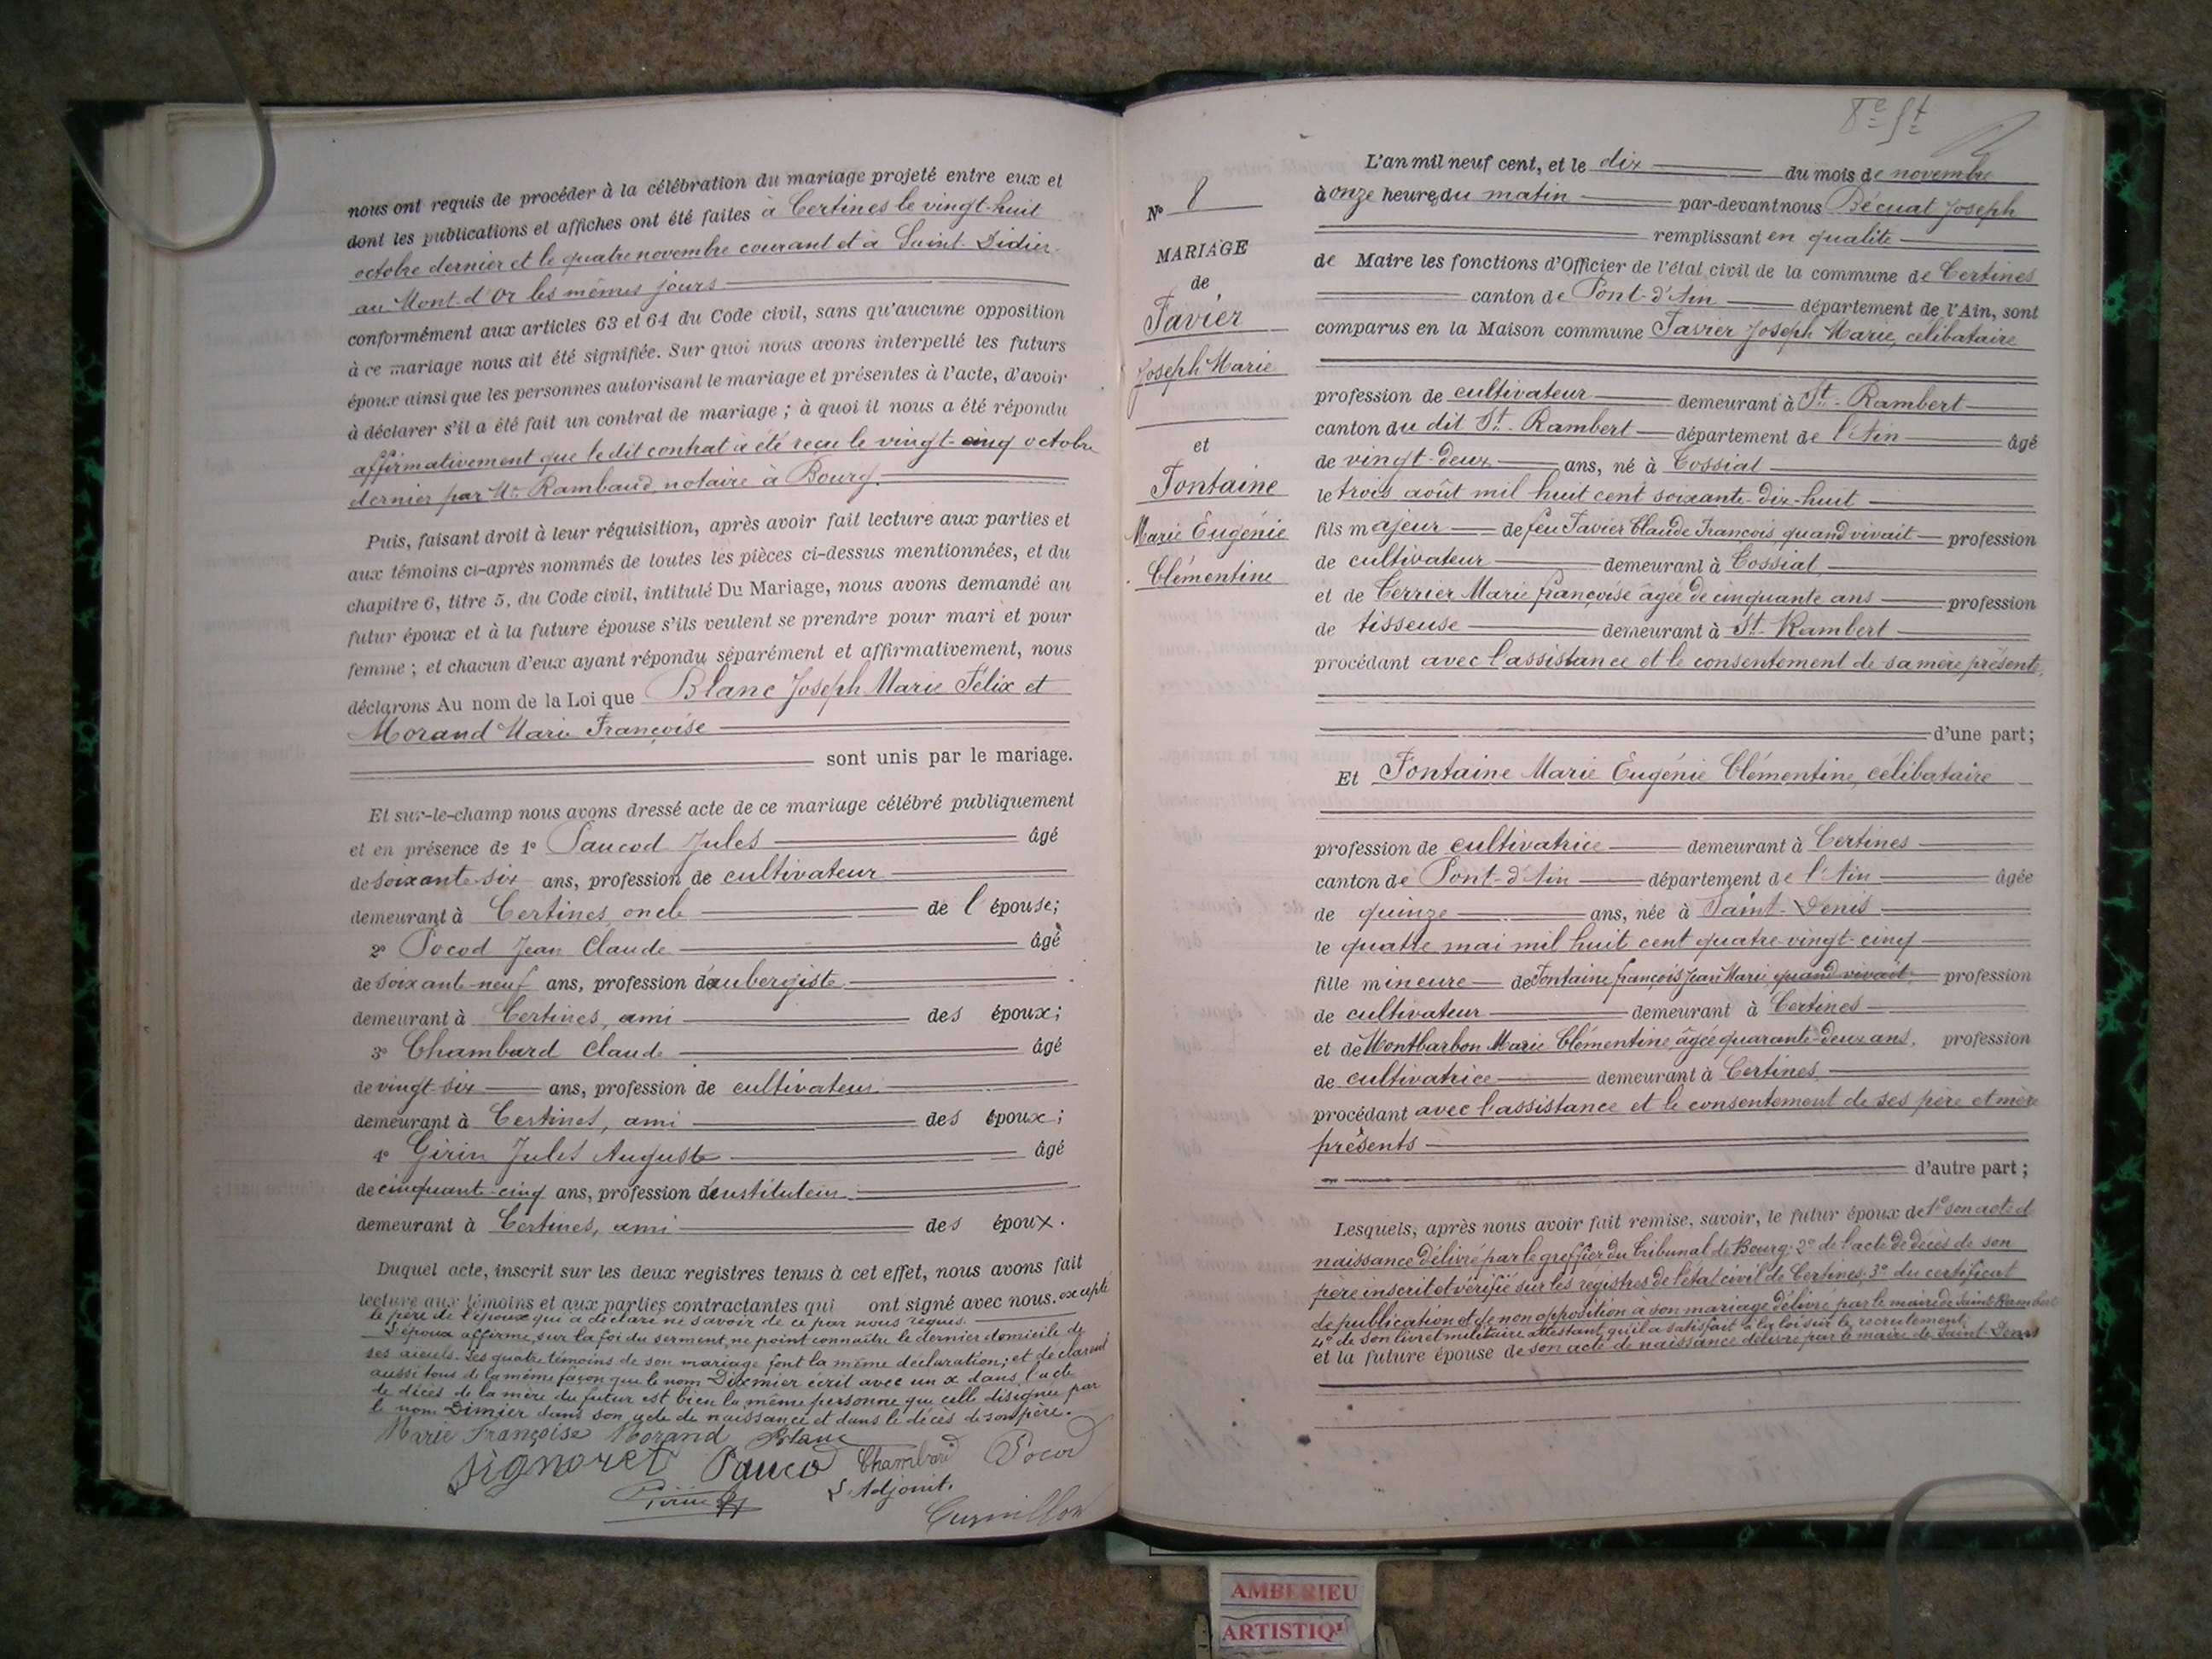 nous ont requis de procéder à la célébration du mariage projeté entre eux et
dont les publications et affiches ont été faites à Certines le vingt-huit
octobre dernier et le quatre novembre courant et à Saint-Didier-
au-Mont-d'Or les mêmes jours
conformément aux articles 63 et 64 du Code civil, sans qu'aucune opposition
à ce mariage nous ait été signifiée. Sur quoi nous avons interpellé les futurs
époux ainsi que les personnes autorisant le mariage et présentes à l'acte, d'avoir
à déclarer s'il a été fait un contrat de mariage ; à quoi il nous a été répondu
affirmativement que le dit contrat a été reçu le vingt-cinq octobre
dernier par Me Rambaud, notaire à Bourg.
Puis, faisant droit à leur réquisition, après avoir fait lecture aux parties et
aux témoins ci-après nommés de toutes les pièces ci-dessus mentionnées, et du
chapitre 6, titre 5, du Code civil, intitulé Du Mariage, nous avons demandé au
futur époux et à la future épouse s'ils veulent se prendre pour mari et pour
femme ; et chacun d'eux ayant répondu séparément et affirmativement, nous
déclarons Au nom de la Loi que Blanc Joseph Marie Félix et
Morand Marie Françoise
sont unis par le mariage.
Et sur-le-champ nous avons dressé acte de ce mariage célébré publiquement
et en présence de 1° Paucod Jules âgé
de soixante-six ans, profession de cultivateur
demeurant à Certines, oncle de l'épouse;
2° Pocod Jean Claude âgé
de soixante-neuf ans, profession d'aubergiste
demeurant à Certines, ami des époux;
3° Chambard Claude âgé
de vingt-six ans, profession de cultivateur
demeurant à Certines, ami des époux;
4° Girin Jules Auguste âgé
de cinquante-cinq ans, profession d'instituteur
demeurant à Certines, ami des époux.
Duquel acte, inscrit sur les deux registres tenus à cet effet, nous avons fait
lecture aux témoins et aux parties contractantes qui ont signé avec nous. excepté
le père de l'époux qui a déclaré ne savoir de ce par nous requis.
L'époux affirme, sur la foi du serment, ne point connaître le dernier domicile de
ses aïeuls. Les quatre témoins de son mariage font la même déclaration; et déclarent
aussi tous de la même façon que le nom Dixmier écrit avec un x dans l'acte
de décès de la mère du futur est bien la même personne que celle désignée par
le nom Dimier dans son acte de naissance et dans le décès de son père.
Marie Françoise Morand Blanc
Signoret Paucod Chambard Pocod
Girin L'Adjoint,
Curnillon
8e ft
N° 8
MARIAGE
de
Favier
Joseph Marie
et
Fontaine
Marie Eugénie
Clémentine
L'an mil neuf cent, et le dix du mois de novembre
à onze heures du matin par-devant nous Bécuat Joseph
remplissant en qualité
de Maire les fonctions d'Officier de l'état civil de la commune de Certines
canton de Pont-d'Ain département de l'Ain, sont
comparus en la Maison commune Favier Joseph Marie, célibataire
profession de cultivateur demeurant à St-Rambert
canton du dit St-Rambert département de l'Ain âgé
de vingt-deux ans, né à Tossiat
le trois août mil huit cent soixante-dix-huit
fils majeur de feu Favier Claude François, quand vivait profession
de cultivateur demeurant à Tossiat
et de Terrier Marie françoise âgée de cinquante ans profession
de tisseuse demeurant à St-Rambert
procédant avec l'assistance et le consentement de sa mère, présente,
d'une part;
Et Fontaine Marie Eugénie Clémentine, célibataire
profession de cultivatrice demeurant à Certines
canton de Pont-d'Ain département de l'Ain âgée
de quinze ans, née à Saint-Denis
le quatre mai mil huit cent quatre-vingt-cinq
fille mineure de Fontaine françois Jean Marie, quand vivait, profession
de cultivateur demeurant à Certines
et de Montbarbon Marie Clémentine, âgée quarante-deux ans, profession
de cultivatrice demeurant à Certines
procédant avec l'assistance et le consentement de ses père et mère
présents
d'autre part ;
Lesquels, après nous avoir fait remise, savoir, le futur époux de 1° son acte d
naissance délivré par le greffier du tribunal de Bourg; 2° de l'acte de décès de son
père inscrit et vérifié sur les registres de l'état civil de Certines; 3° du certificat
de publication et de non opposition à son mariage délivré par le maire de Saint-Rambert
4° de son livret militaire attestant qu'il a satisfait à la loi sur le recrutement,
et la future épouse de son acte de naissance délivré par le maire de Saint-Denis
AMBERIEU
ARTISTIQ